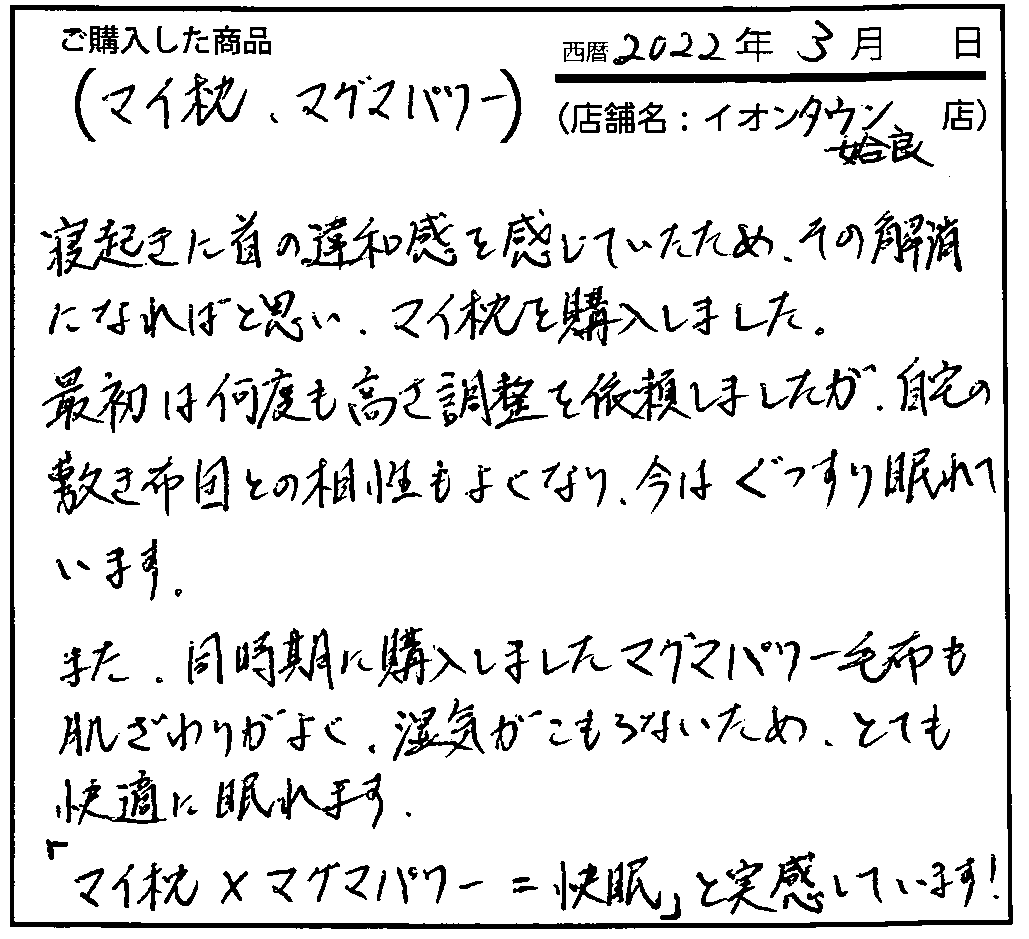 ご購入した商品
西暦 2022年 3月 日
(マイ枕、マグマパワー)
(店舗名:イオンタウン 店)
姶良
寝起きに首の違和感を感じていたため、その解消
になればと思い、マイ枕を購入しました。
最初は何度も高さ調整を依頼しましたが、自宅の
敷き布団との相性もよくなり、今はぐっすり眠れて
います。
また、同時期に購入しましたマグマパワー毛布も
肌ざわりがよく、湿気がこもらないため、とても
快適に眠れます。
「マイ枕×マグマパワー=快眠」と実感しています!